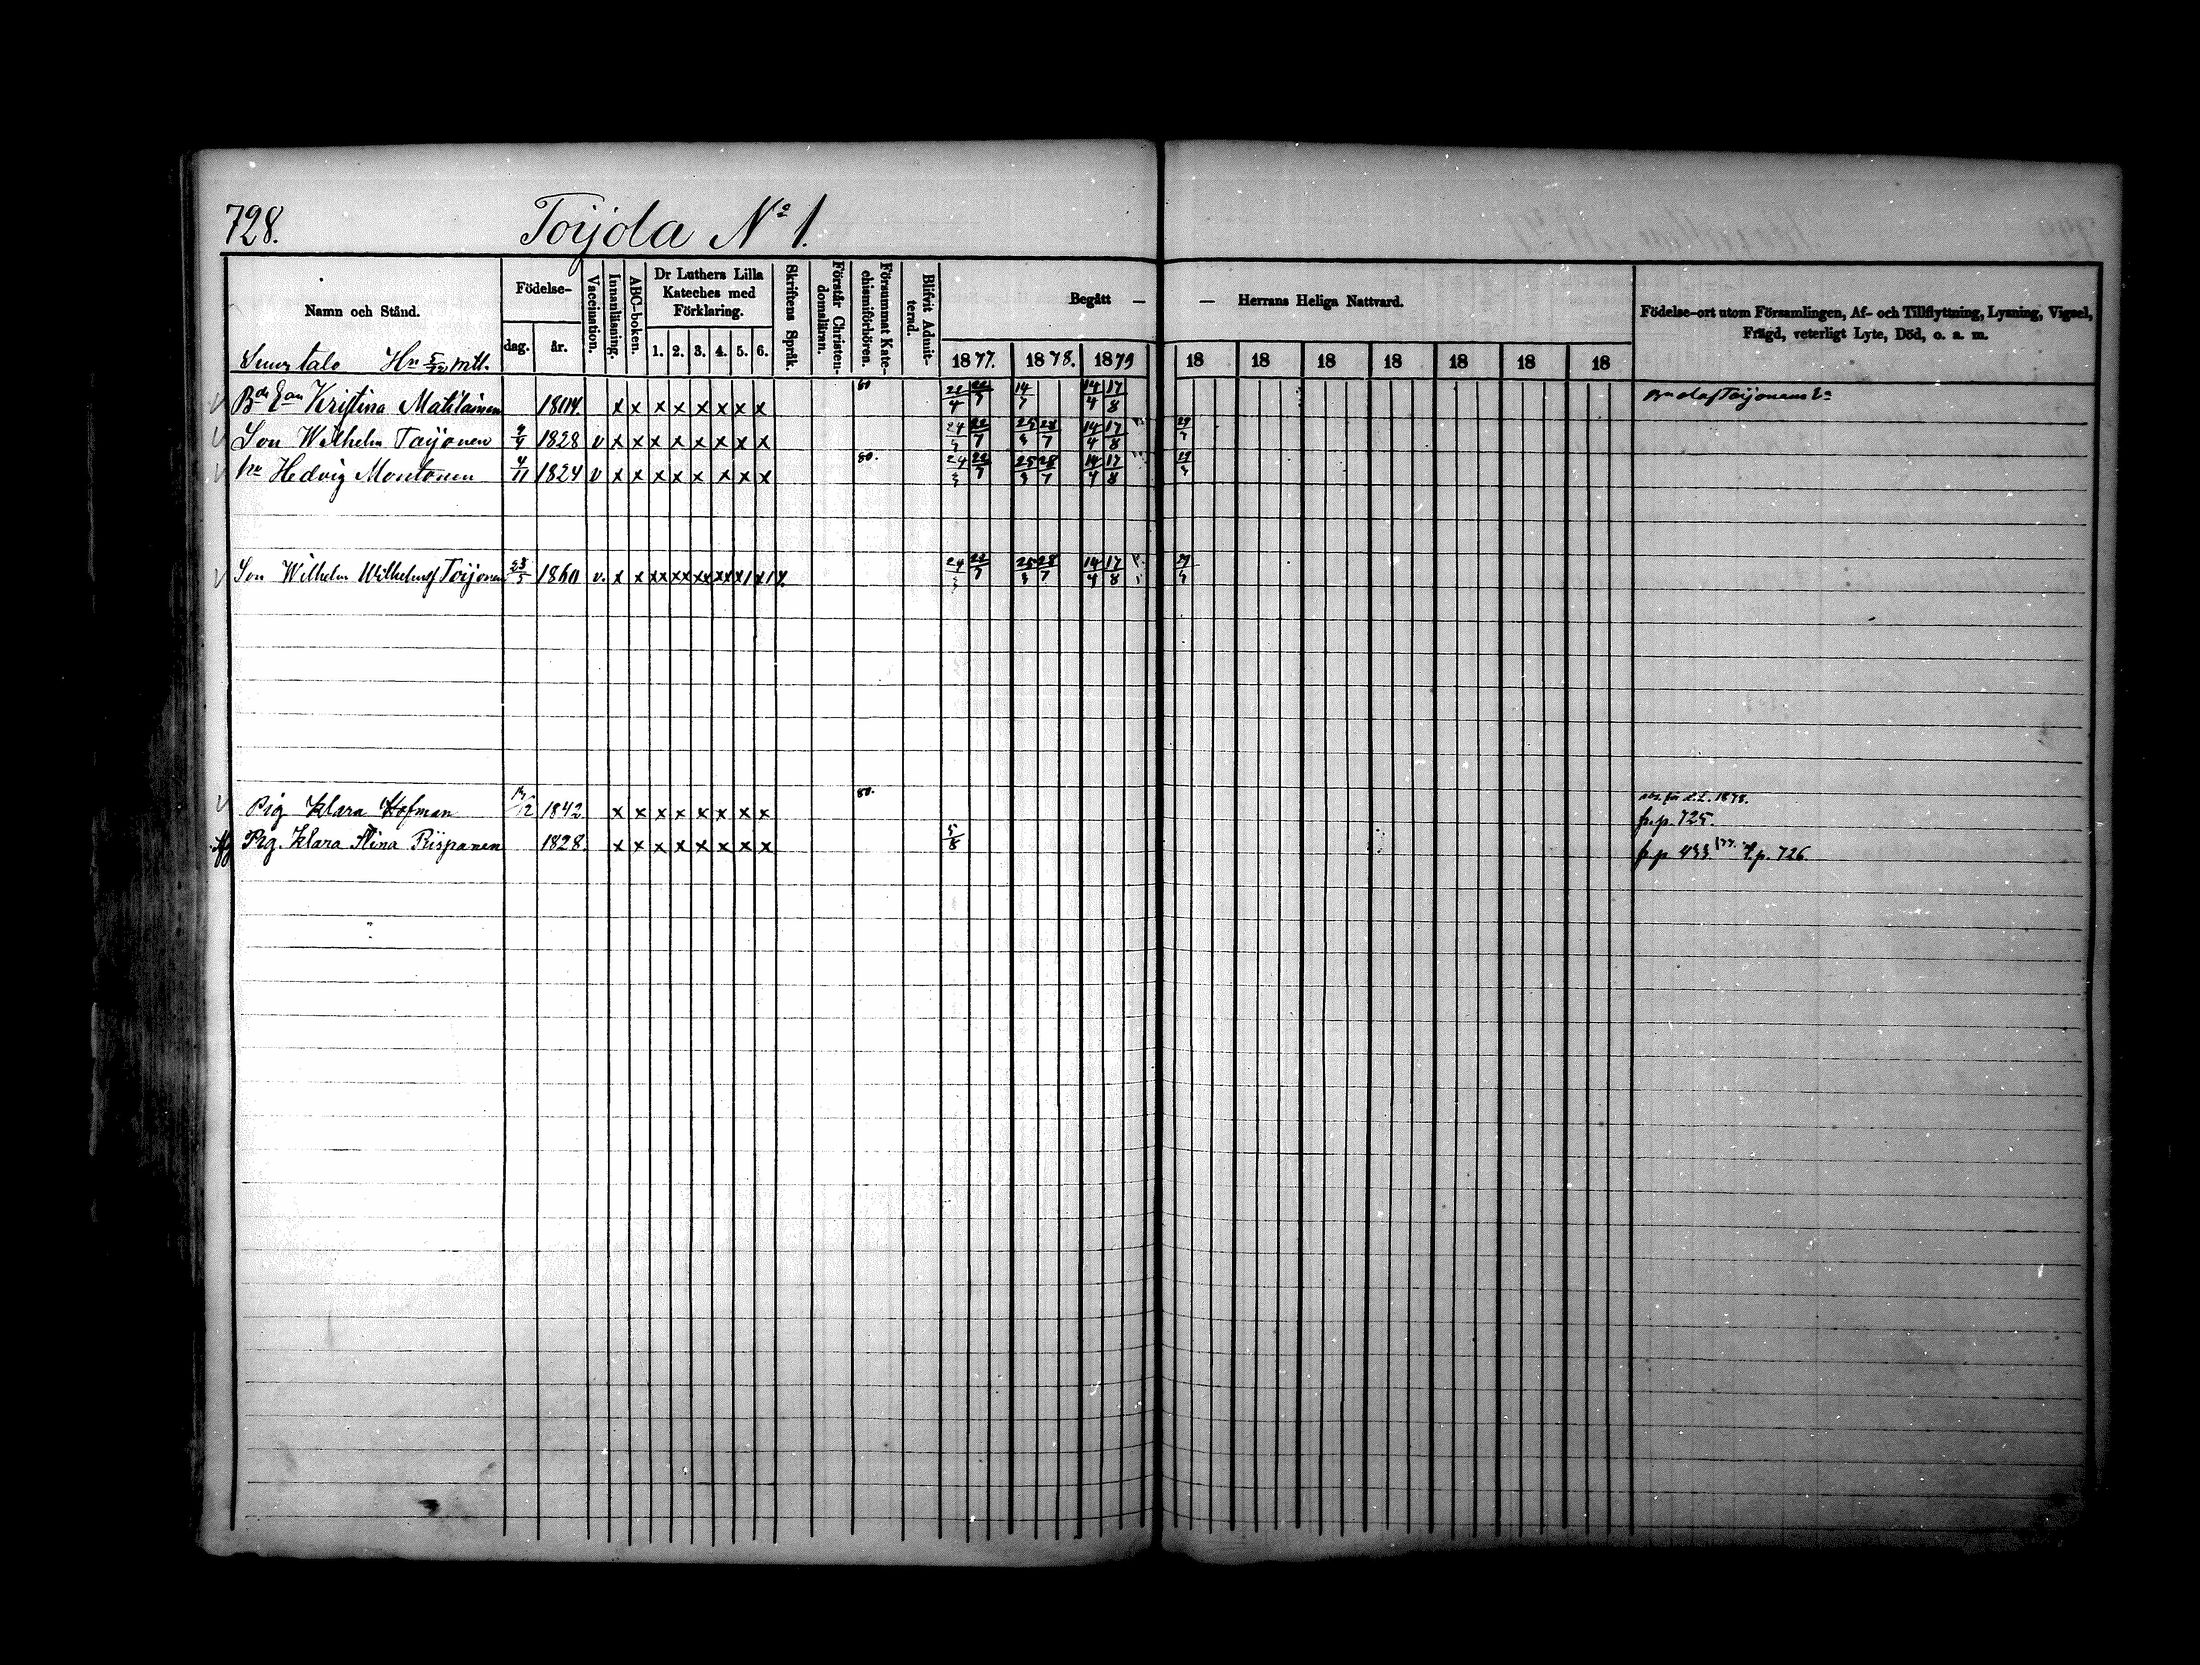 728. Toijola No 1.
Namn och Stånd.
Födelse-
dag.
år.
Vaccination.
Innanläsning.
ABC-boken.
Dr Luthers Lilla Kateches med Förklaring.
1. 2. 3. 4. 5. 6.
Skriftens Språk.
Förstår Christen-domsläran.
Försummat Kate-chismiförhören.
Blifvit Admit-terad.
Begått — — Herrans Heliga Nattvard.
1877. 1878. 1879 18 18 18 18 18 18 18
Födelse-ort utom Församlingen, Af- och Tillflyttning, Lysning, Vigsel,
Frägd, veterligt Lyte, Död, o. s. m.
Kristina Matilainen 1804. x x x x x x x x 80 22/4 22/7 14/7 14/4 17/8
Son Wilhelm Toijonen 1828 v x x x x x x x x 24/3 22/7 25/3 28/7 14/4 17/8
Hu Hedvig Monttonen 4/11 1824 v x x x x x x x x 80. 24/3 22/7 25/3 28/7 14/4 17/8
Son Wilhelm Wilhelmsf Toijonen 23/5 1860 v. x x xx xx xx xx 24/3 22/7 25/3 28/7 14/4 17/8
Pig Klara Hofman 1842 x x x x x x x x 80. 1878.
fr.p. 725.
Pig. Klara Stina Piispanen 1828. x x x x x x x x 5/8 fr.p 433. t.p. 726.